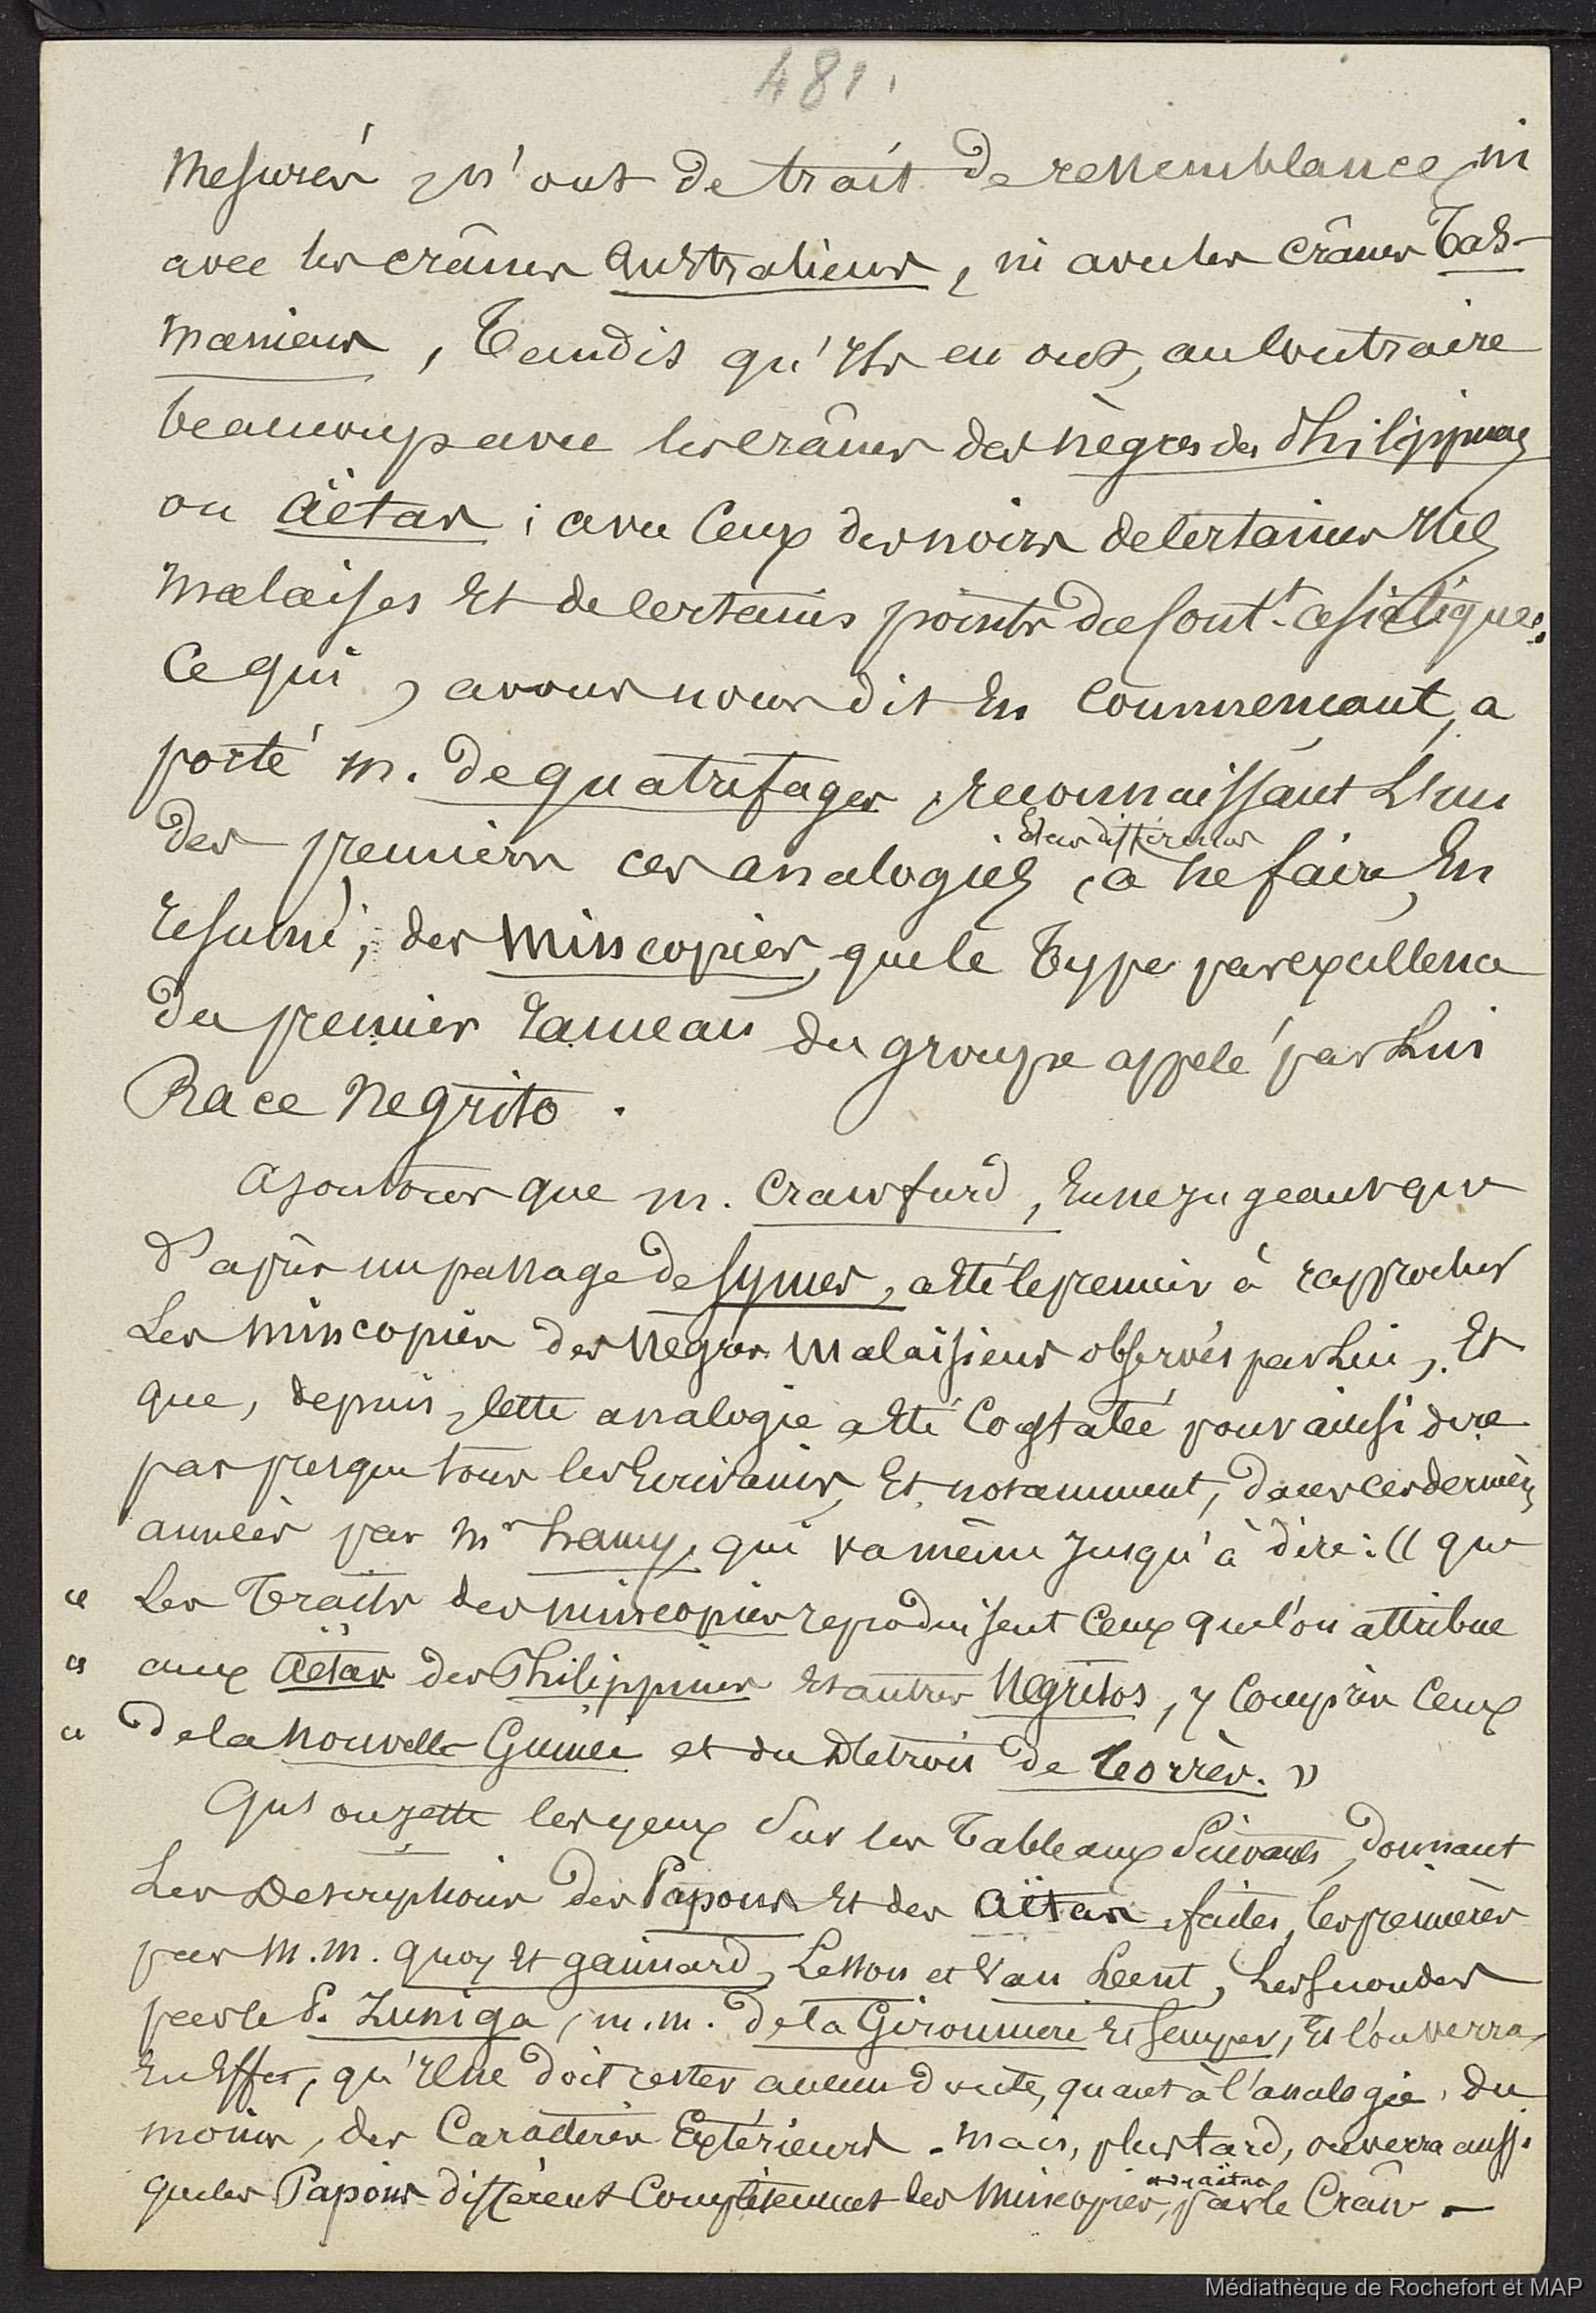 481.
Mesurés, n'ont de trait de ressemblance, ni
avec les crânes Australiens, ni avec les crânes Tas-
maniens, Tandis qu'Ils en ont, au Contraire
beaucoup avec les crânes des nègres des Philippines
ou Äetas ; avec Ceux des noirs de Certaines Iles
Malaises Et de Certains points du Cont.t asiatique.
Ce qui, avons nous dit En Commençant, a
porté M. De quatrefages, reconnaissant L'un
Et ces différences
des premiers ces analogies, à ne faire, En
résumé, des Mincopies, que le Type par excellence
du premier Rameau du groupe appelé par Lui
Race Negrito.
Ajoutons que M. Crawfurd, En ne jugeant que
D'après un passage de Symes, a Eté le premier à rapprocher
Les Mincopies des Nègres Malaisiens observés par Lui, Et
que, depuis, Cette analogie a Eté Constatée pour ainsi dire
par presque tous les Ecrivains, Et notamment, dans ces dernières
années par Mr hamy, qui va même Jusqu'à dire : « que
« Les Traits des Mincopies reproduisent Ceux que l'on attribue
« aux Aëtas des Philippines Et autres Négritos, y Compris Ceux
« De la Nouvelle Guinée et du Détroit de Torrès. »
Qu'on jette les yeux Sur les Tableaux Suivants, donnant
Les Descriptions des Papous Et des Aëtas, faites, les premières
par M.M. Quoy Et gaimard, Lesson et Van Leent, Les Secondes
par le P. Zuniga, M.M. De la Gironnière Et Semper, Et l'on verra,
En Effet, qu'Il ne doit rester aucun doute, quant à l'analogie, du
moins, des Caractères Extérieurs. Mais, plus tard, on verra aussi
et des aëtas
que les Papous diffèrent Complètement des Mincopies, par le Crâne. —
Médiathèque de Rochefort et MAP